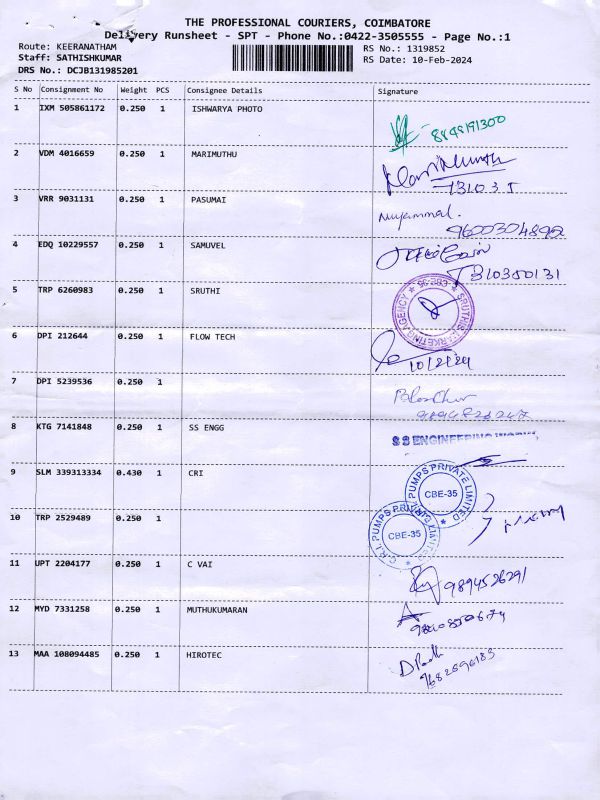 THE PROFESSIONAL COURIERS, COIMBATORE
Delivery Runsheet - SPT - Phone No.:0422-3505555 - Page No.:1
Route: KEERANATHAM RS No.: 1319852
Staff: SATHISHKUMAR RS Date: 10-Feb-2024
DRS No.: DCJB131985201
S No Consignment No Weight PCS Consignee Details Signature
1 IXM 505861172 0.250 1 ISHWARYA PHOTO
8848191300
2 VDM 4016659 0.250 1 MARIMUTHU
3 VRR 9031131 0.250 1 PASUMAI
9600304892
4 EDQ 10229557 0.250 1 SAMUVEL
5 TRP 6260983 0.250 1 SRUTHI
SRUTHI MARKETING AGENCY CBE-35
6 DPI 212644 0.250 1 FLOW TECH
10/2/24
7 DPI 5239536 0.250 1
8 KTG 7141848 0.250 1 SS ENGG
S S ENGINEERING WORKS
9 SLM 339313334 0.430 1 CRI
C.R.I. PUMPS PRIVATE LIMITED CBE-35
10 TRP 2529489 0.250 1
C.R.I. PUMPS PRIVATE LIMITED CBE-35
11 UPT 2204177 0.250 1 C VAI
9894526291
12 MYD 7331258 0.250 1 MUTHUKUMARAN
13 MAA 108094485 0.250 1 HIROTEC